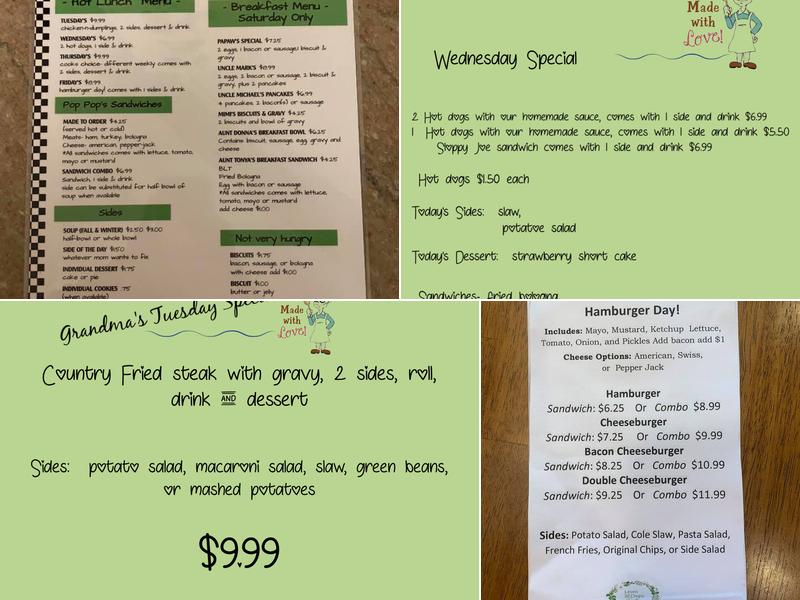 - Hot Lunch Menu -
TUESDAY'S $9.99
chicken-n-dumplings, 2 sides, dessert & drink
WEDNESDAY'S $6.99
2 hot dogs, 1 side & drink
THURSDAY'S $9.99
cooks choice- different weekly comes with
2 sides, dessert & drink
FRIDAY'S
hamburger day! comes with 1 sides & drink
Pop Pop's Sandwiches
MADE TO ORDER $4.25
(served hot or cold)
Meats- ham, turkey, bologna
Cheese- american, pepper-jack
*All sandwiches comes with lettuce, tomato,
mayo or mustard
SANDWICH COMBO $6.99
Sandwich, 1 side & drink
side can be substituted for half bowl of
soup when available
Sides
SOUP (FALL & WINTER) $2.50 $3.00
half-bowl or whole bowl
SIDE OF THE DAY $1.50
whatever mom wants to fix
INDIVIDUAL DESSERT $1.75
cake or pie
INDIVIDUAL COOKIES .75
(when available)
- Breakfast Menu -
Saturday Only
PAPAW'S SPECIAL $7.25
2 eggs, 1 bacon or sausage, biscuit &
gravy
UNCLE MARK'S
2 eggs, 2 bacon or sausage, 2 biscuit &
gravy, plus 2 pancakes
UNCLE MICHAEL'S PANCAKES $6.99
4 pancakes, 2 bacon(s) or sausage
MIMI'S BISCUITS & GRAVY $4.25
2 biscuits and bowl of gravy
AUNT DONNA'S BREAKFAST BOWL $6.25
Contains biscuit, sausage, egg gravy and
cheese
AUNT TONYA'S BREAKFAST SANDWICH $4.25
BLT
Fried Bologna
Egg with bacon or sausage
*All sandwiches comes with lettuce,
tomato, mayo or mustard
add cheese $1.00
Not very hungry
BISCUITS $1.75
bacon, sausage, or bologna
with cheese add $1.00
BISCUIT $1.00
butter or jelly
Made
with
Love!
Wednesday Special
2 Hot dogs with our homemade sauce, comes with 1 side and drink $6.99
1 Hot dogs with our homemade sauce, comes with 1 side and drink $5.50
Sloppy Joe sandwich comes with 1 side and drink $6.99
Hot dogs $1.50 each
Today's Sides: slaw,
potatoe salad
Today's Dessert: strawberry short cake
Sandwiches- fried bologna
Grandma's Tuesday Special
Made
with
Love!
Country Fried steak with gravy, 2 sides, roll,
drink AND dessert
Sides: potato salad, macaroni salad, slaw, green beans,
or mashed potatoes
$9.99
Hamburger Day!
Includes: Mayo, Mustard, Ketchup Lettuce,
Tomato, Onion, and Pickles Add bacon add $1
Cheese Options: American, Swiss,
or Pepper Jack
Hamburger
Sandwich: $6.25 Or Combo $8.99
Cheeseburger
Sandwich: $7.25 Or Combo $9.99
Bacon Cheeseburger
Sandwich: $8.25 Or Combo $10.99
Double Cheeseburger
Sandwich: $9.25 Or Combo $11.99
Sides: Potato Salad, Cole Slaw, Pasta Salad,
French Fries, Original Chips, or Side Salad